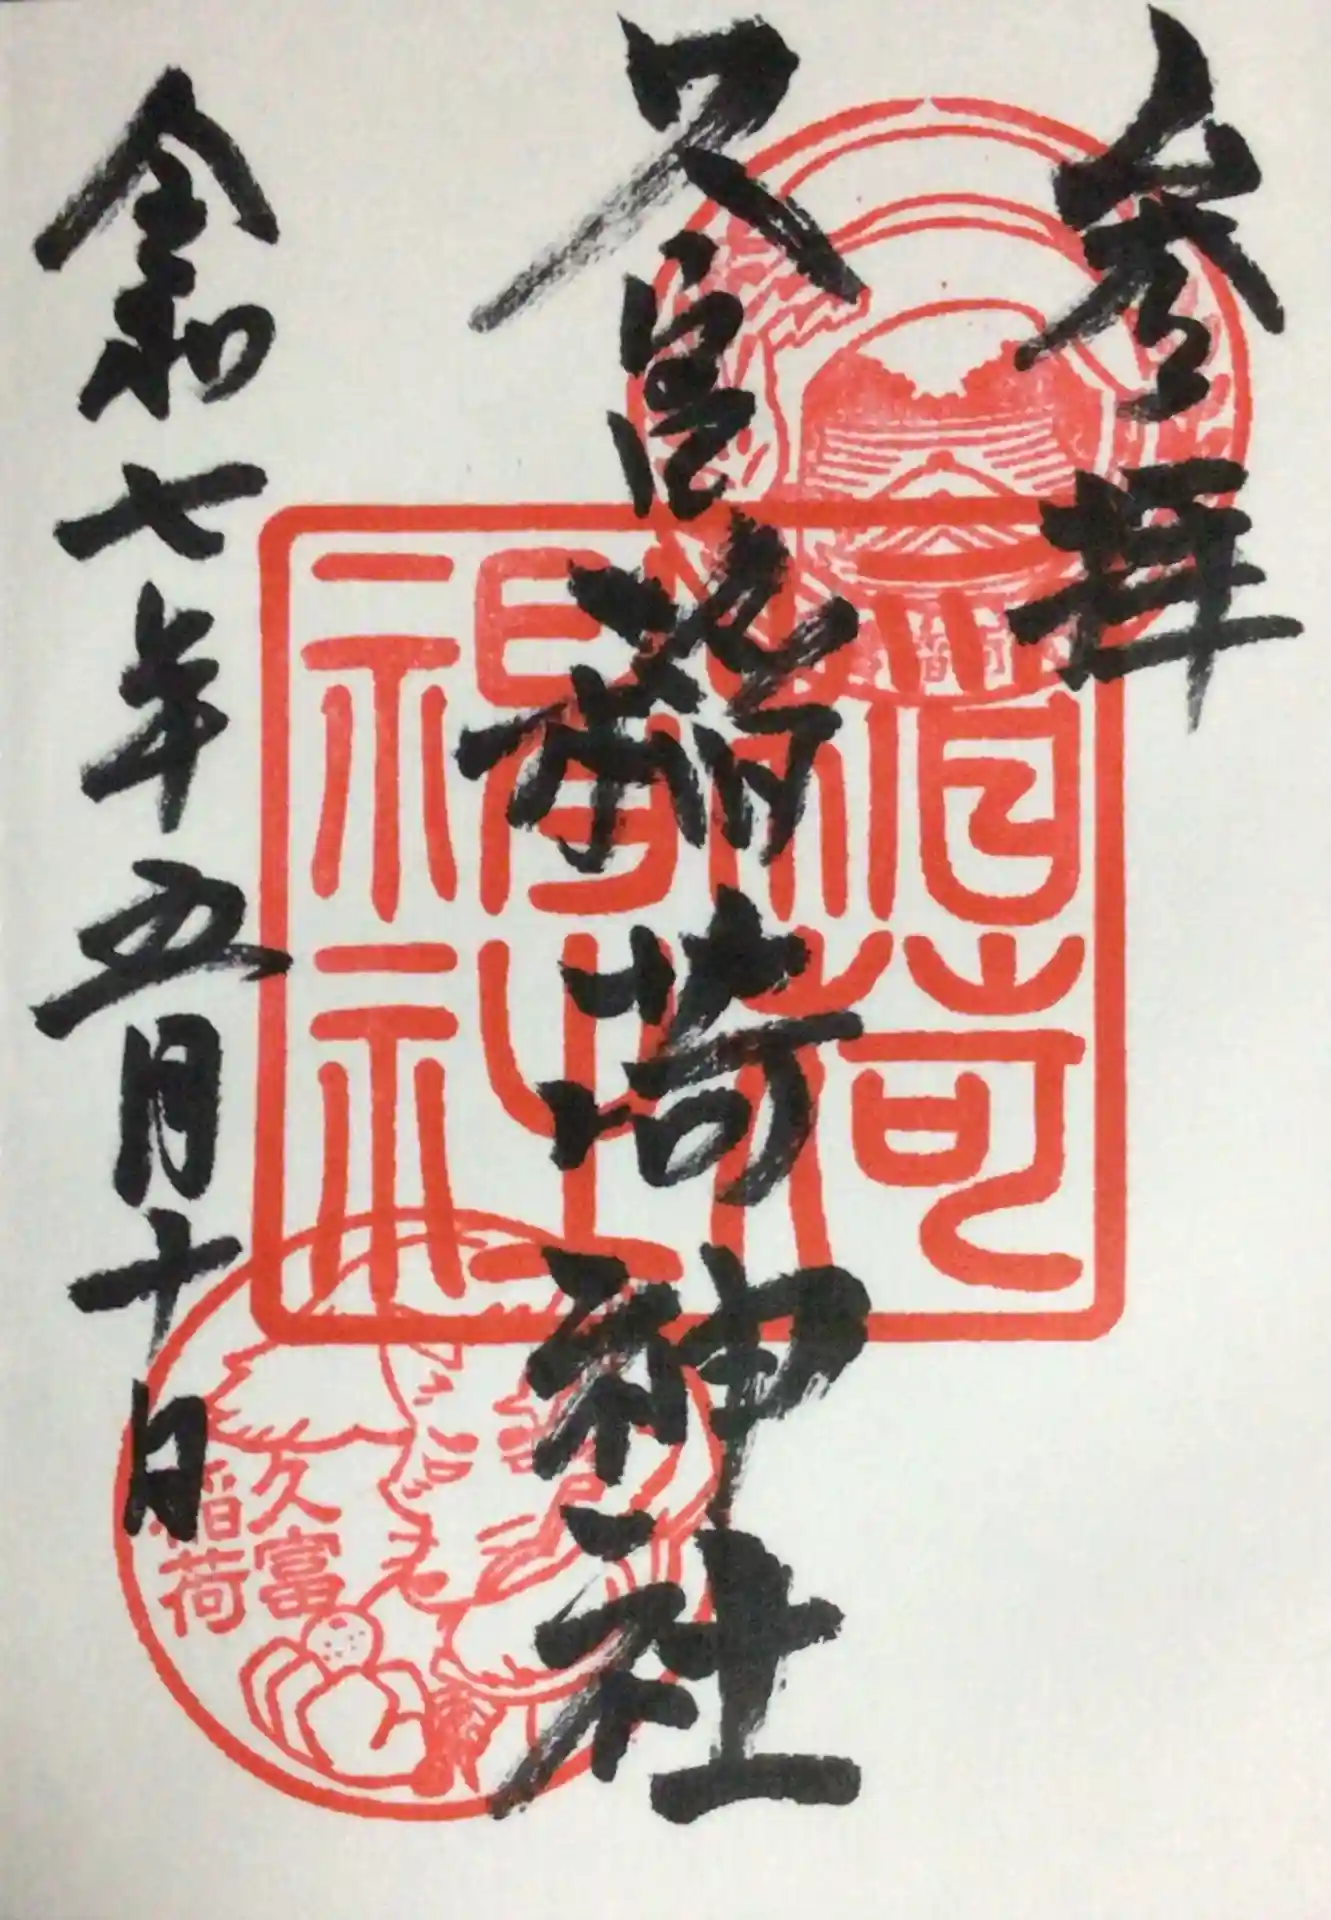 参拝
久富稲荷神社
令和七年五月十日
稲荷神社
久富
稲荷